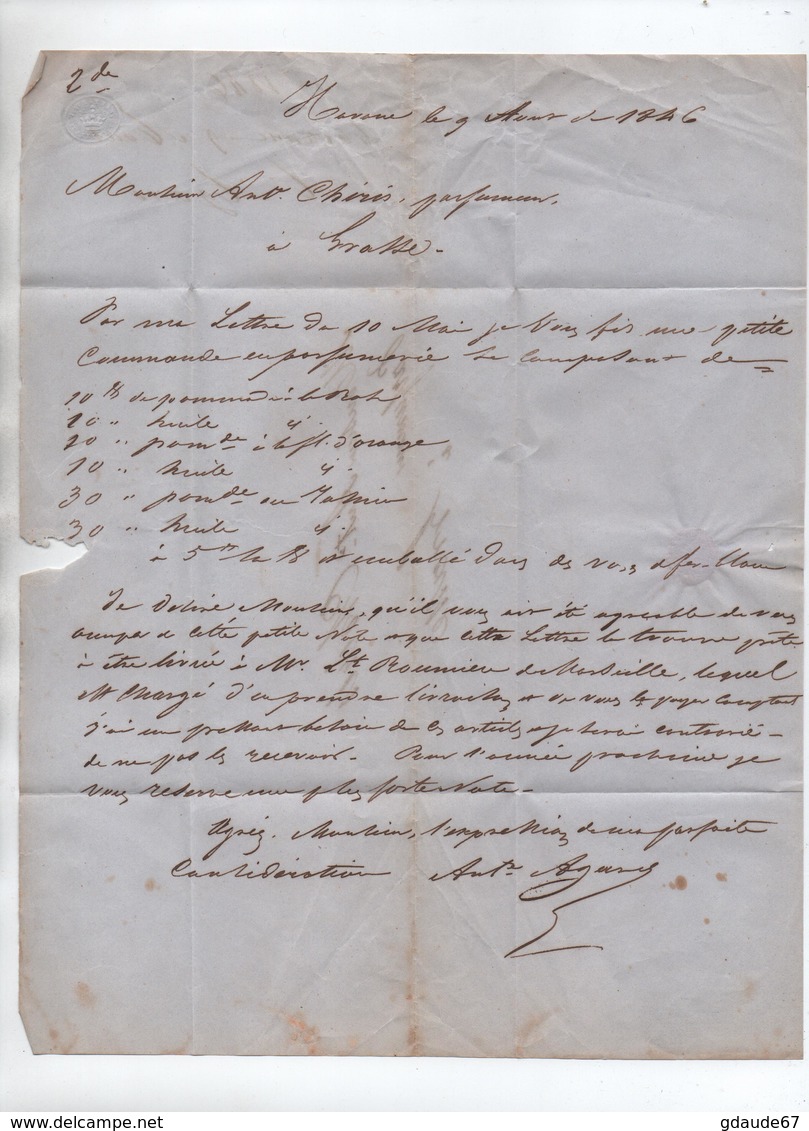 2de
Havane le 9 Aout de 1846
Monsieur Ant. Chiris, parfumeur,
à Grasse.
Par ma Lettre du 10 Mai je Vous fis une petite
Commande en parfumerie se composant de
10 lb de pommade à la Rose
10 " huile "
20 " pomde à la fl. d'orange
10 " huile "
30 " pomde au Jasmin
30 " huile "
à 5 la lb et emballé dans des vases
Je désire Monsieur, qu'il vous ait été agréable de vous
occuper de cette petite Note et que cette Lettre la trouve prête
à être livrée à Mr. Lt. Roumieu de Marseille, lequel
est chargé d'en prendre livraison et de vous la payer comptant
J'ai un pressant besoin de ces articles et je serai contrarié
de ne pas les recevoir. Pour l'année prochaine je
vous réserve une plus forte Note.
Agréez, Monsieur, l'expression de ma parfaite
Considération Ant.
gdaude67